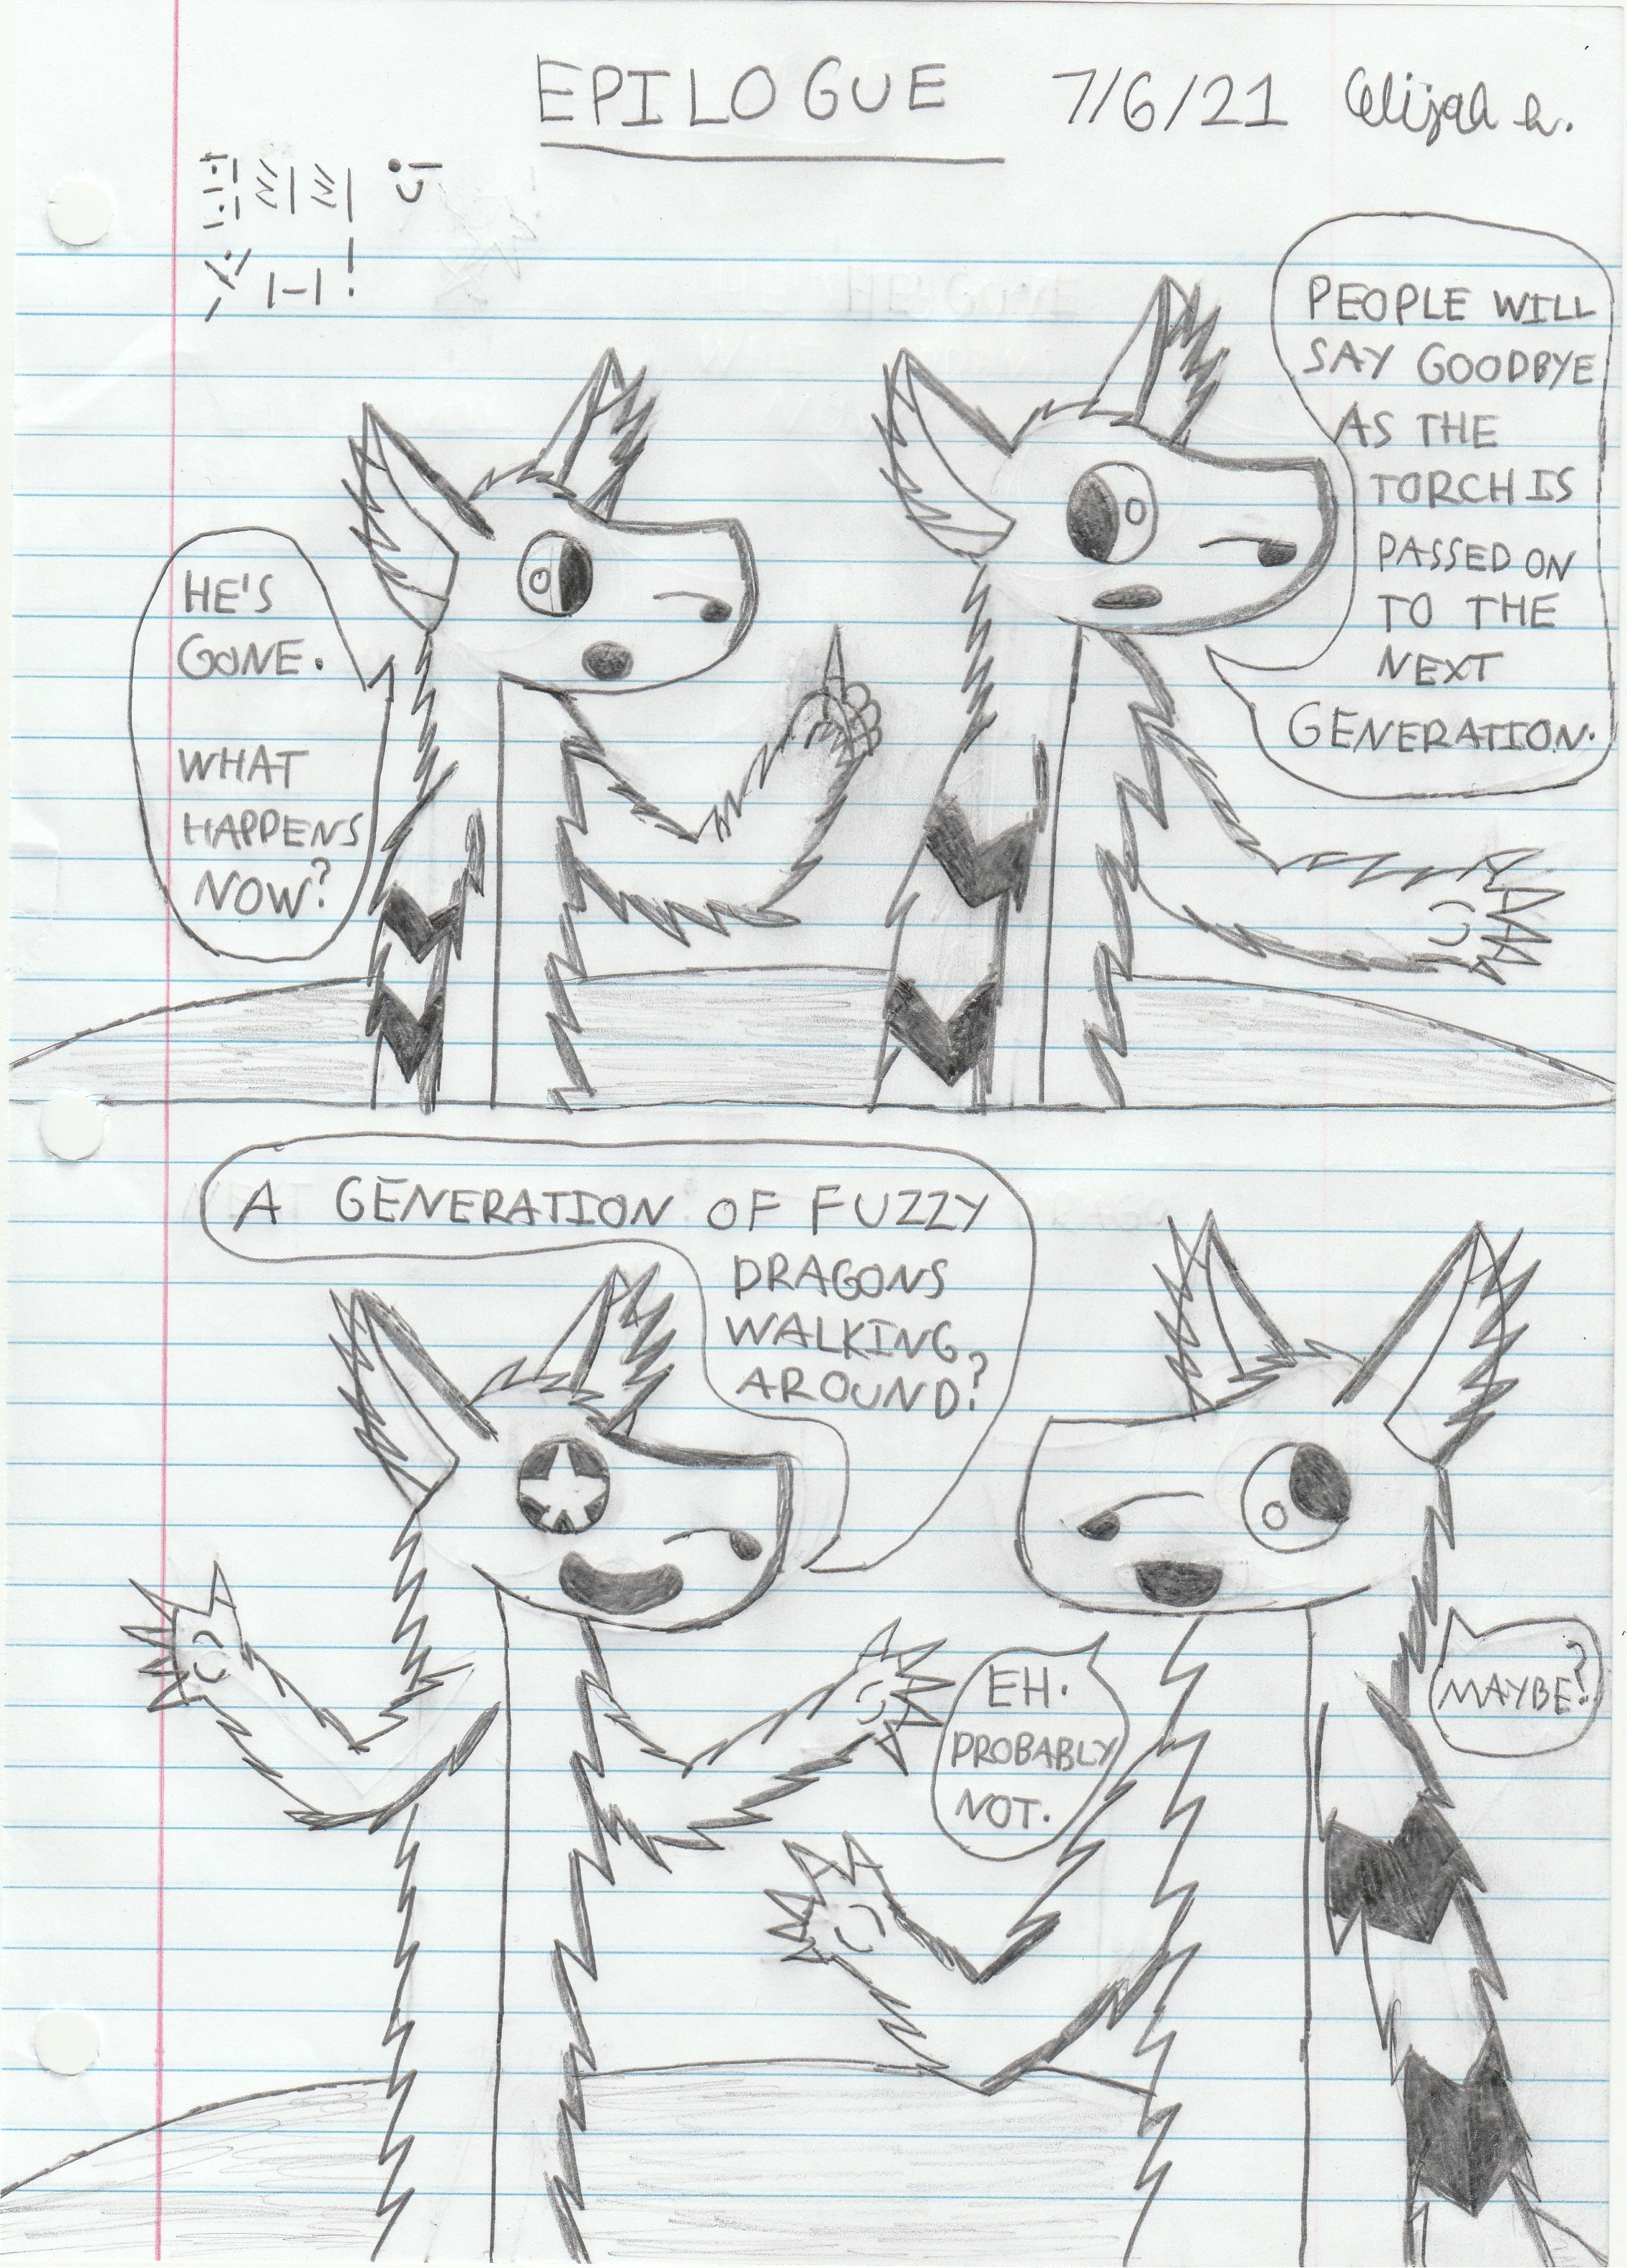 EPILOGUE 7/6/21 Elijah h.
HE'S
GONE.
WHAT
HAPPENS
NOW?
PEOPLE WILL
SAY GOODBYE
AS THE
TORCH IS
PASSED ON
TO THE
NEXT
GENERATION.
A GENERATION OF FUZZY
DRAGONS
WALKING
AROUND?
EH.
PROBABLY
NOT.
MAYBE?